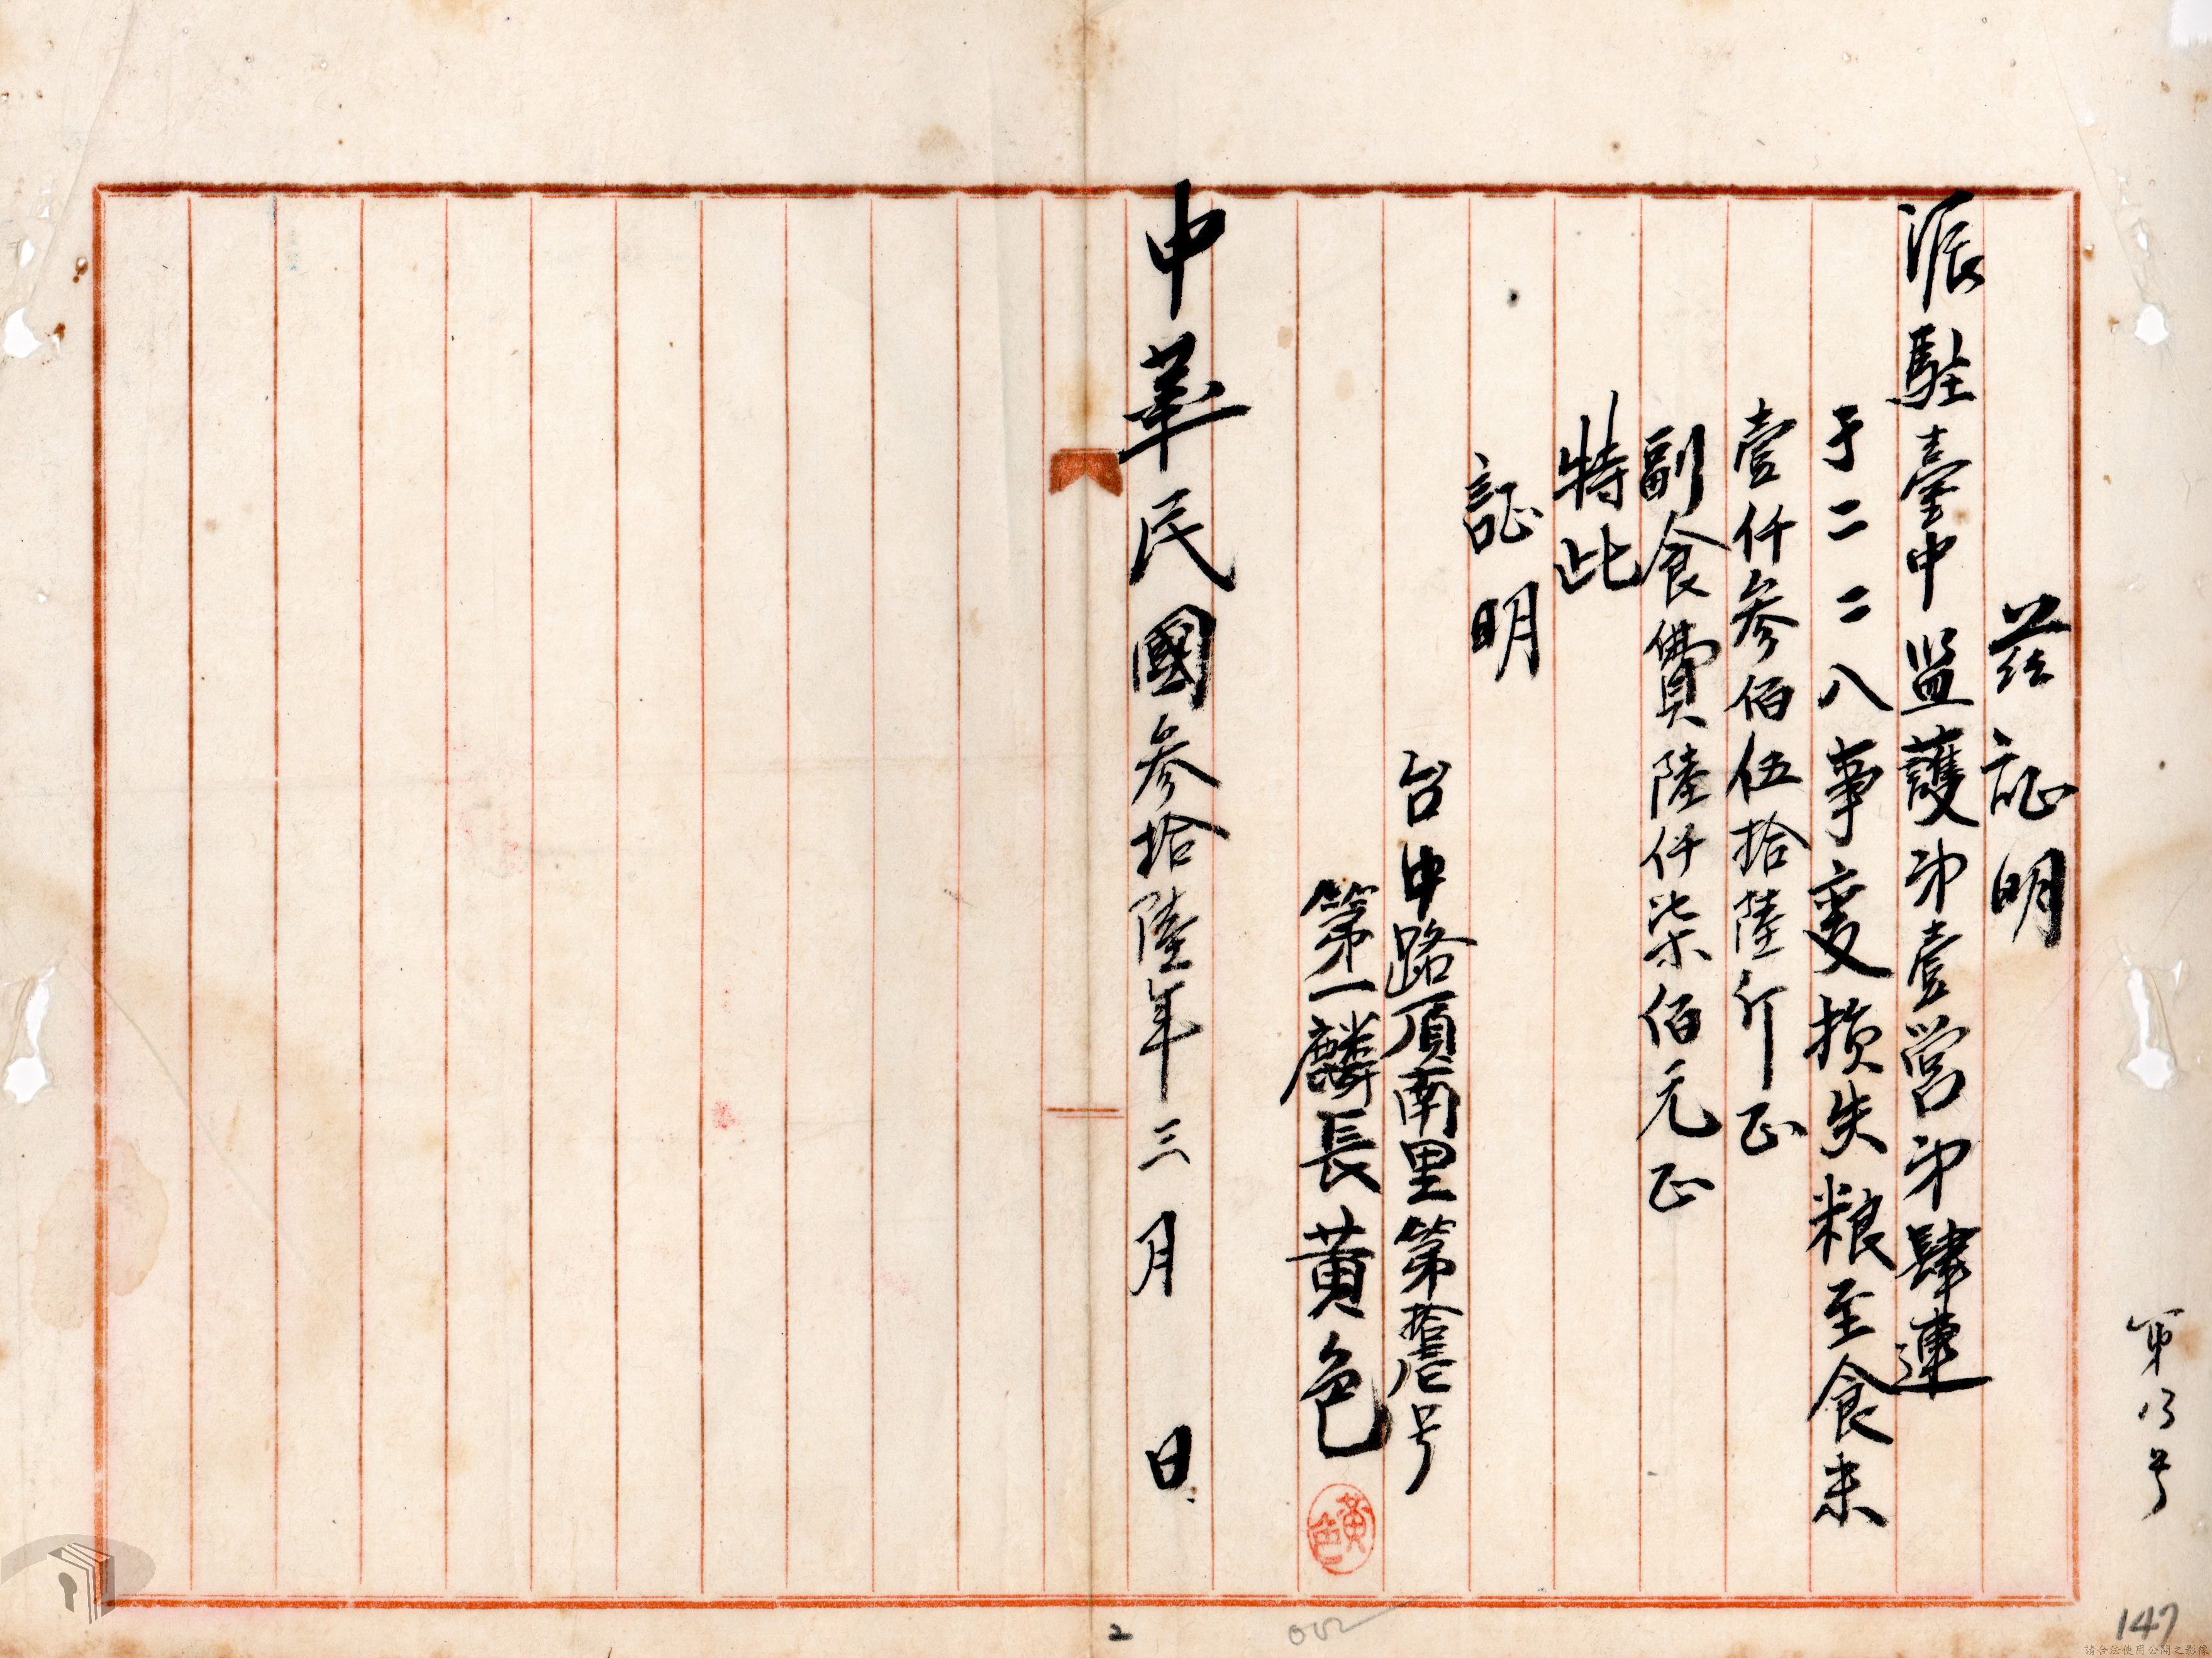 第13号
茲証明
派駐臺中监護第壹营第肆連
于二二八事变损失粮至食未
壹仟参佰伍拾陸斤正
副食費陸仟柒佰元正
特此
証明
台中路頂南里第拾壹号
第一麟長黄色
黃色
中華民國参拾陸年三月 日
2
002
147
請合法使用公開之影像